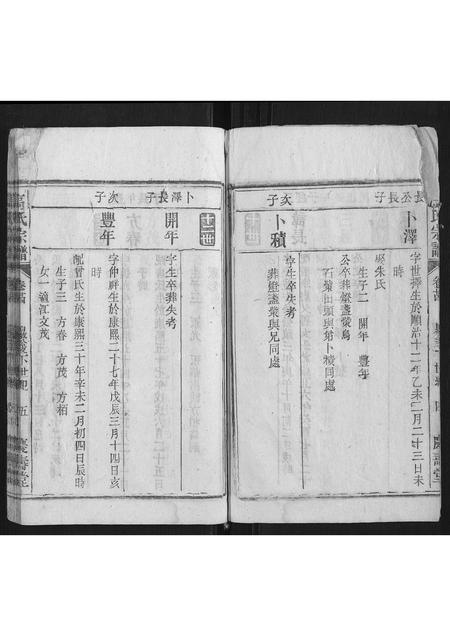 長公長子
卜澤
字世擇生於順治十二年乙未二月二十三日未
時
娶朱氏
生子二 開年 豐年
公卒葬燈盞棨烏
石棨田頭與弟卜積同處
次子
卜積
字生卒失考
葬燈盞棨與兄同處
十二世
卜澤長子
開年
字生卒葬失考
次子
豐年
字仲祥生於康熙二十七年戊辰三月十四日亥
時
配曾氏生於康熙三十年辛未二月初四日辰時
生子三 方春 方茂 方栢
女一適江文茂
氏宗譜
五